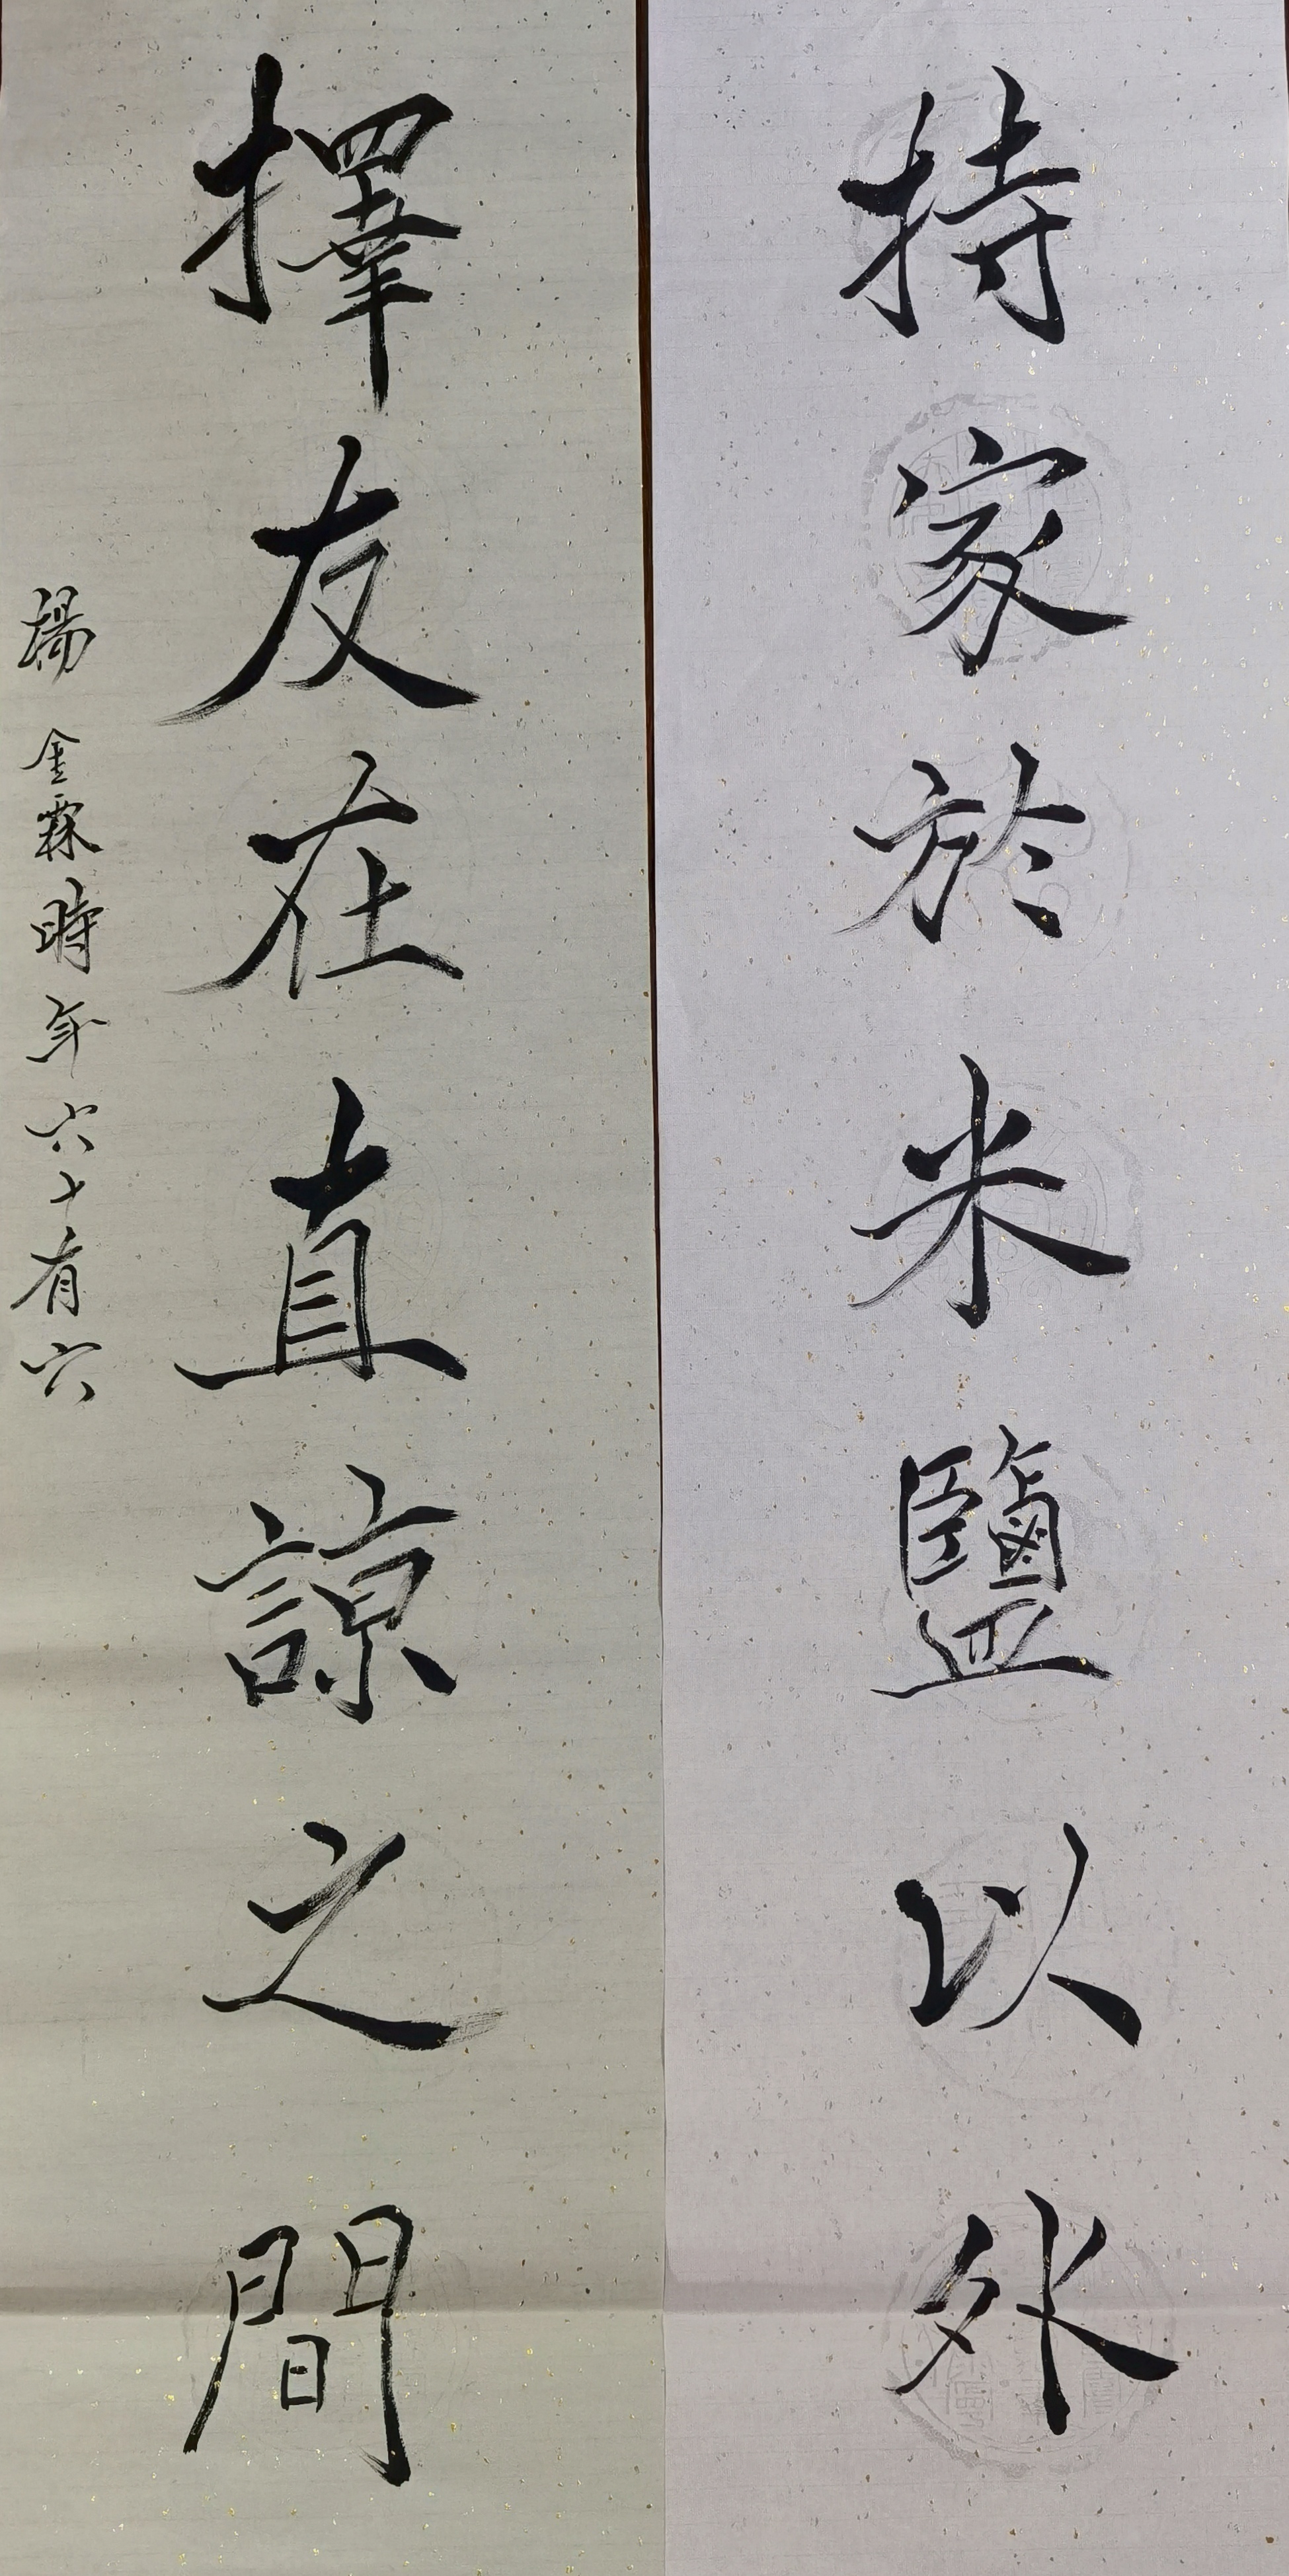 持家於米鹽以外
擇友在直諒之間
楊金霖時年六十有六